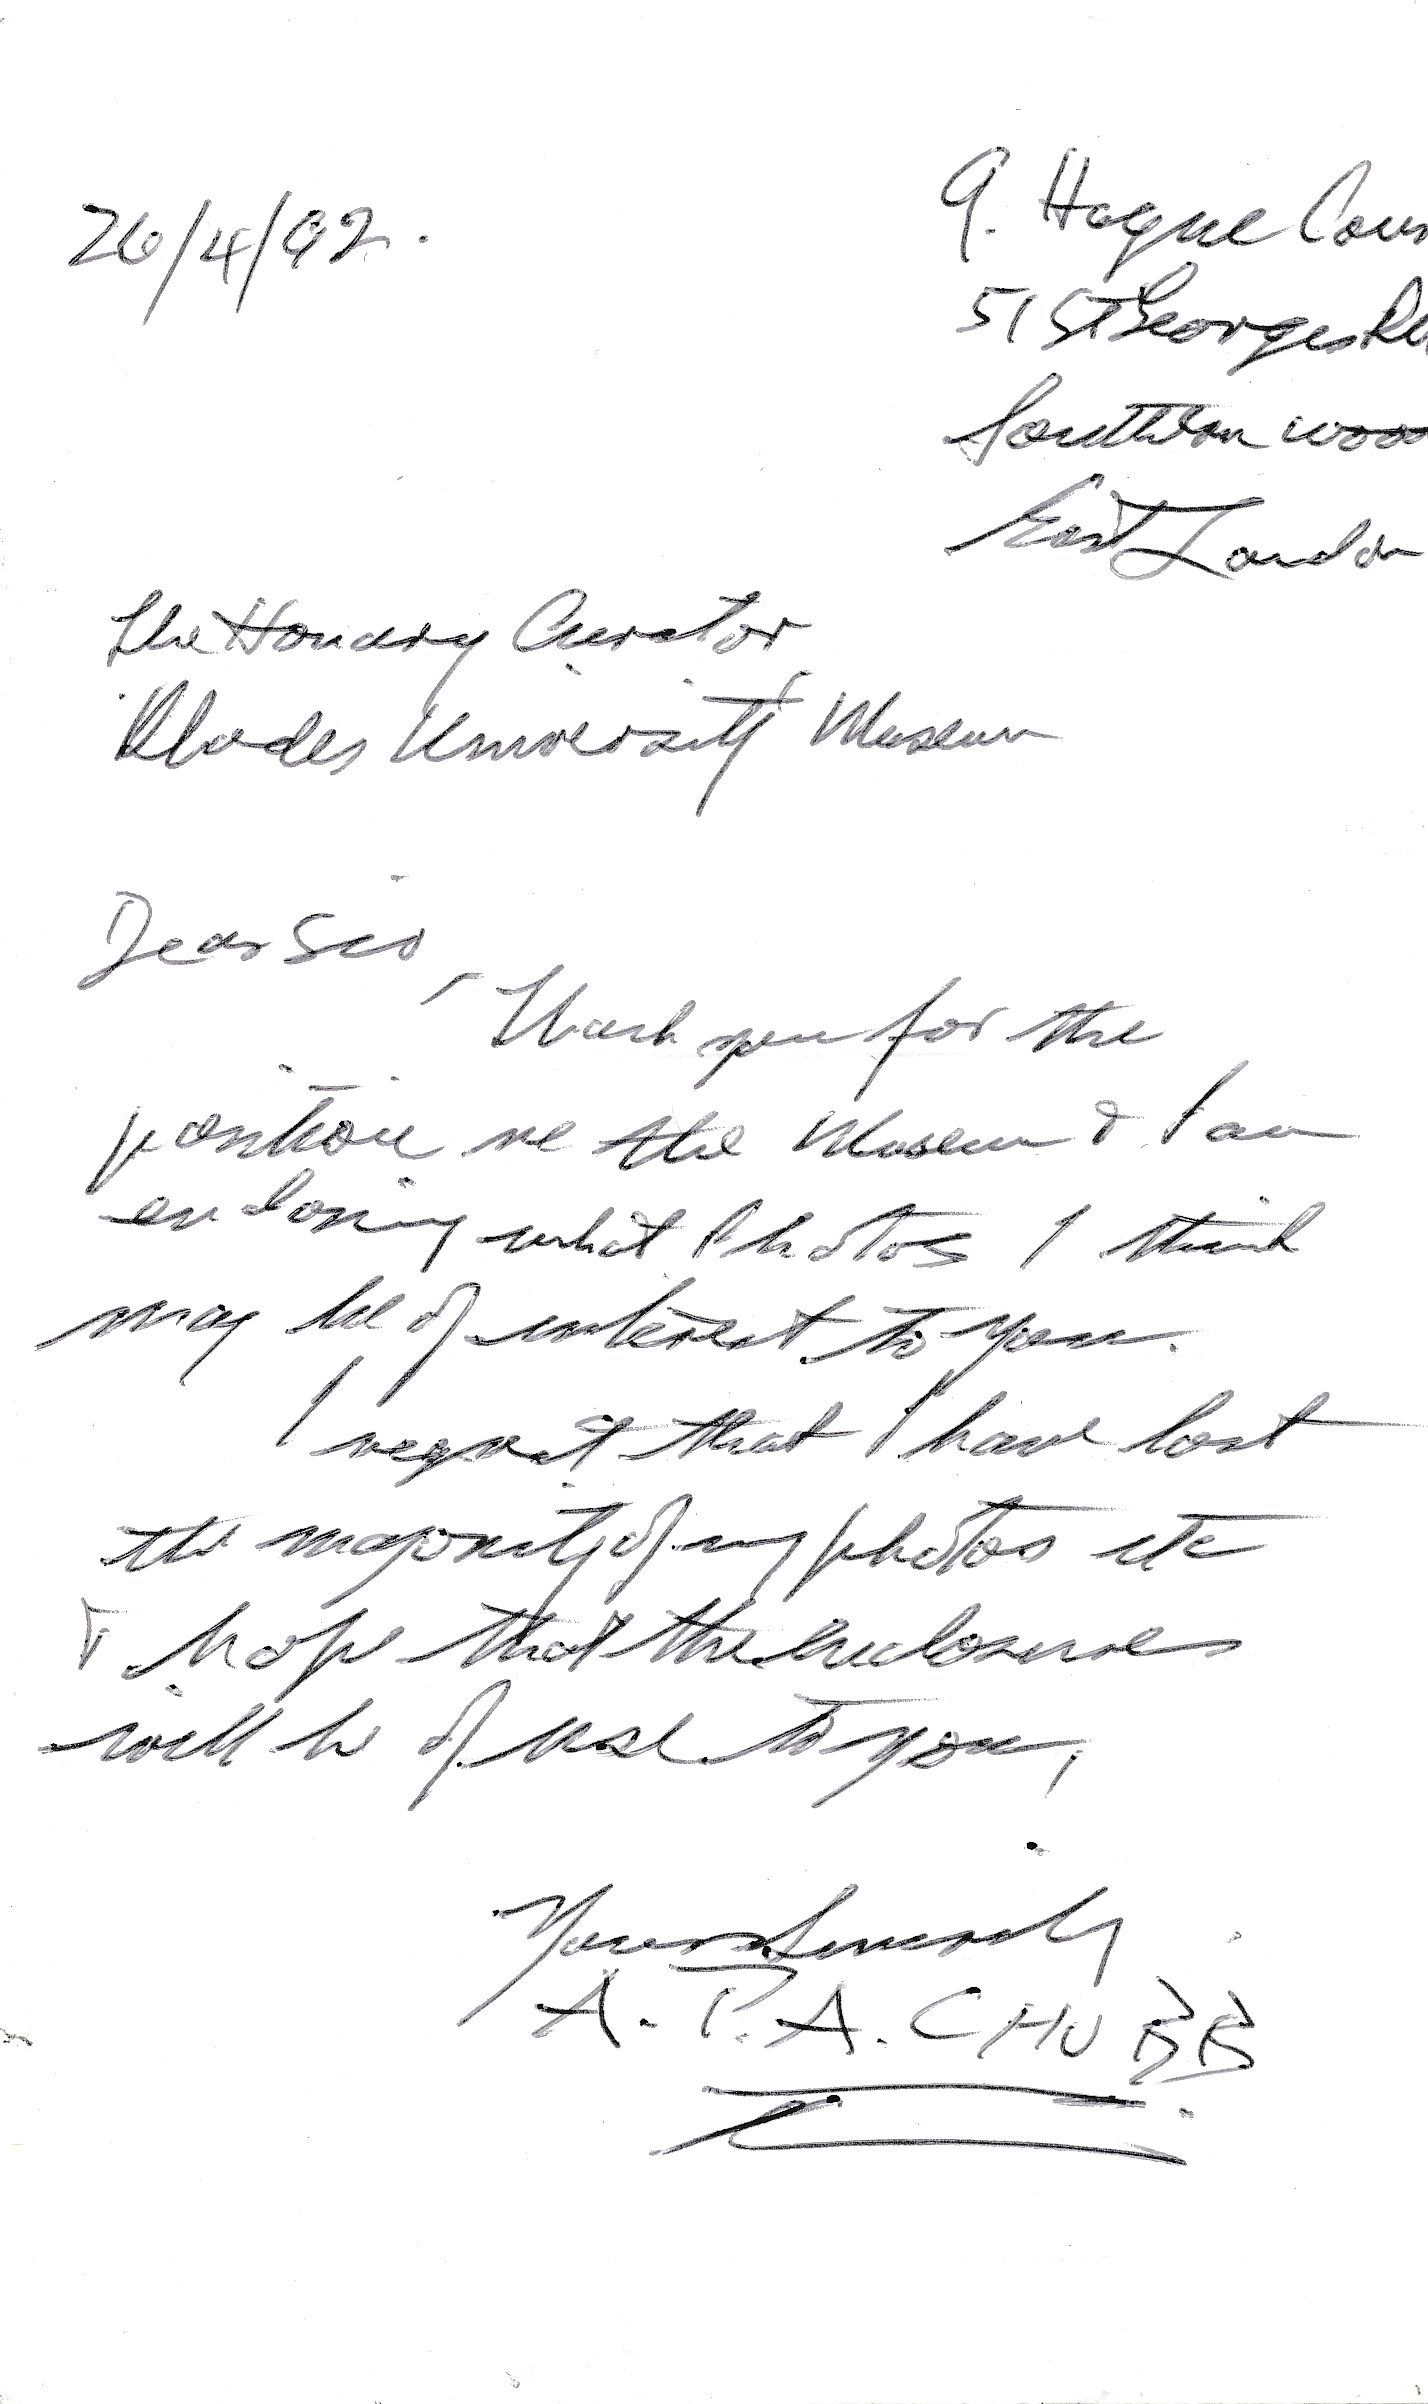 26/4/92.
9. Hague Cour
51 St Georges Rd
Southernwood
East London
The Honary Curator
Rhodes University Museum
Dear Sir,
Thank you for the
position re the Museum & I am
enclosing what Photos I think
may be of interest to you.
I regret that I have lost
the majority of my photos etc
& hope that the enclosures
will be of use to you,
Yours Sincerely
A. P. A. CHUBB